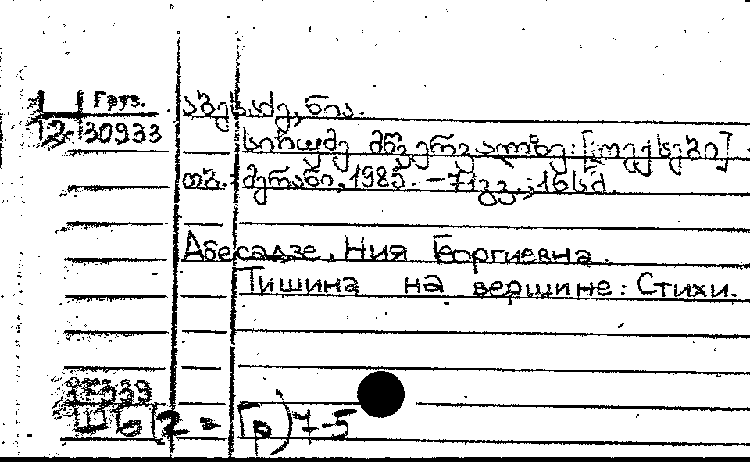 Груз.
12-30933
აბესაძე, ნია.
სიჩუმე მწვერვალზე: [ლექსები]
თბ.: მერანი, 1985. – 71 გვ.; 16 სმ.
Абесадзе, Ния Георгиевна.
Тишина на вершине: Стихи.
Ш6(2=Гр)7-5